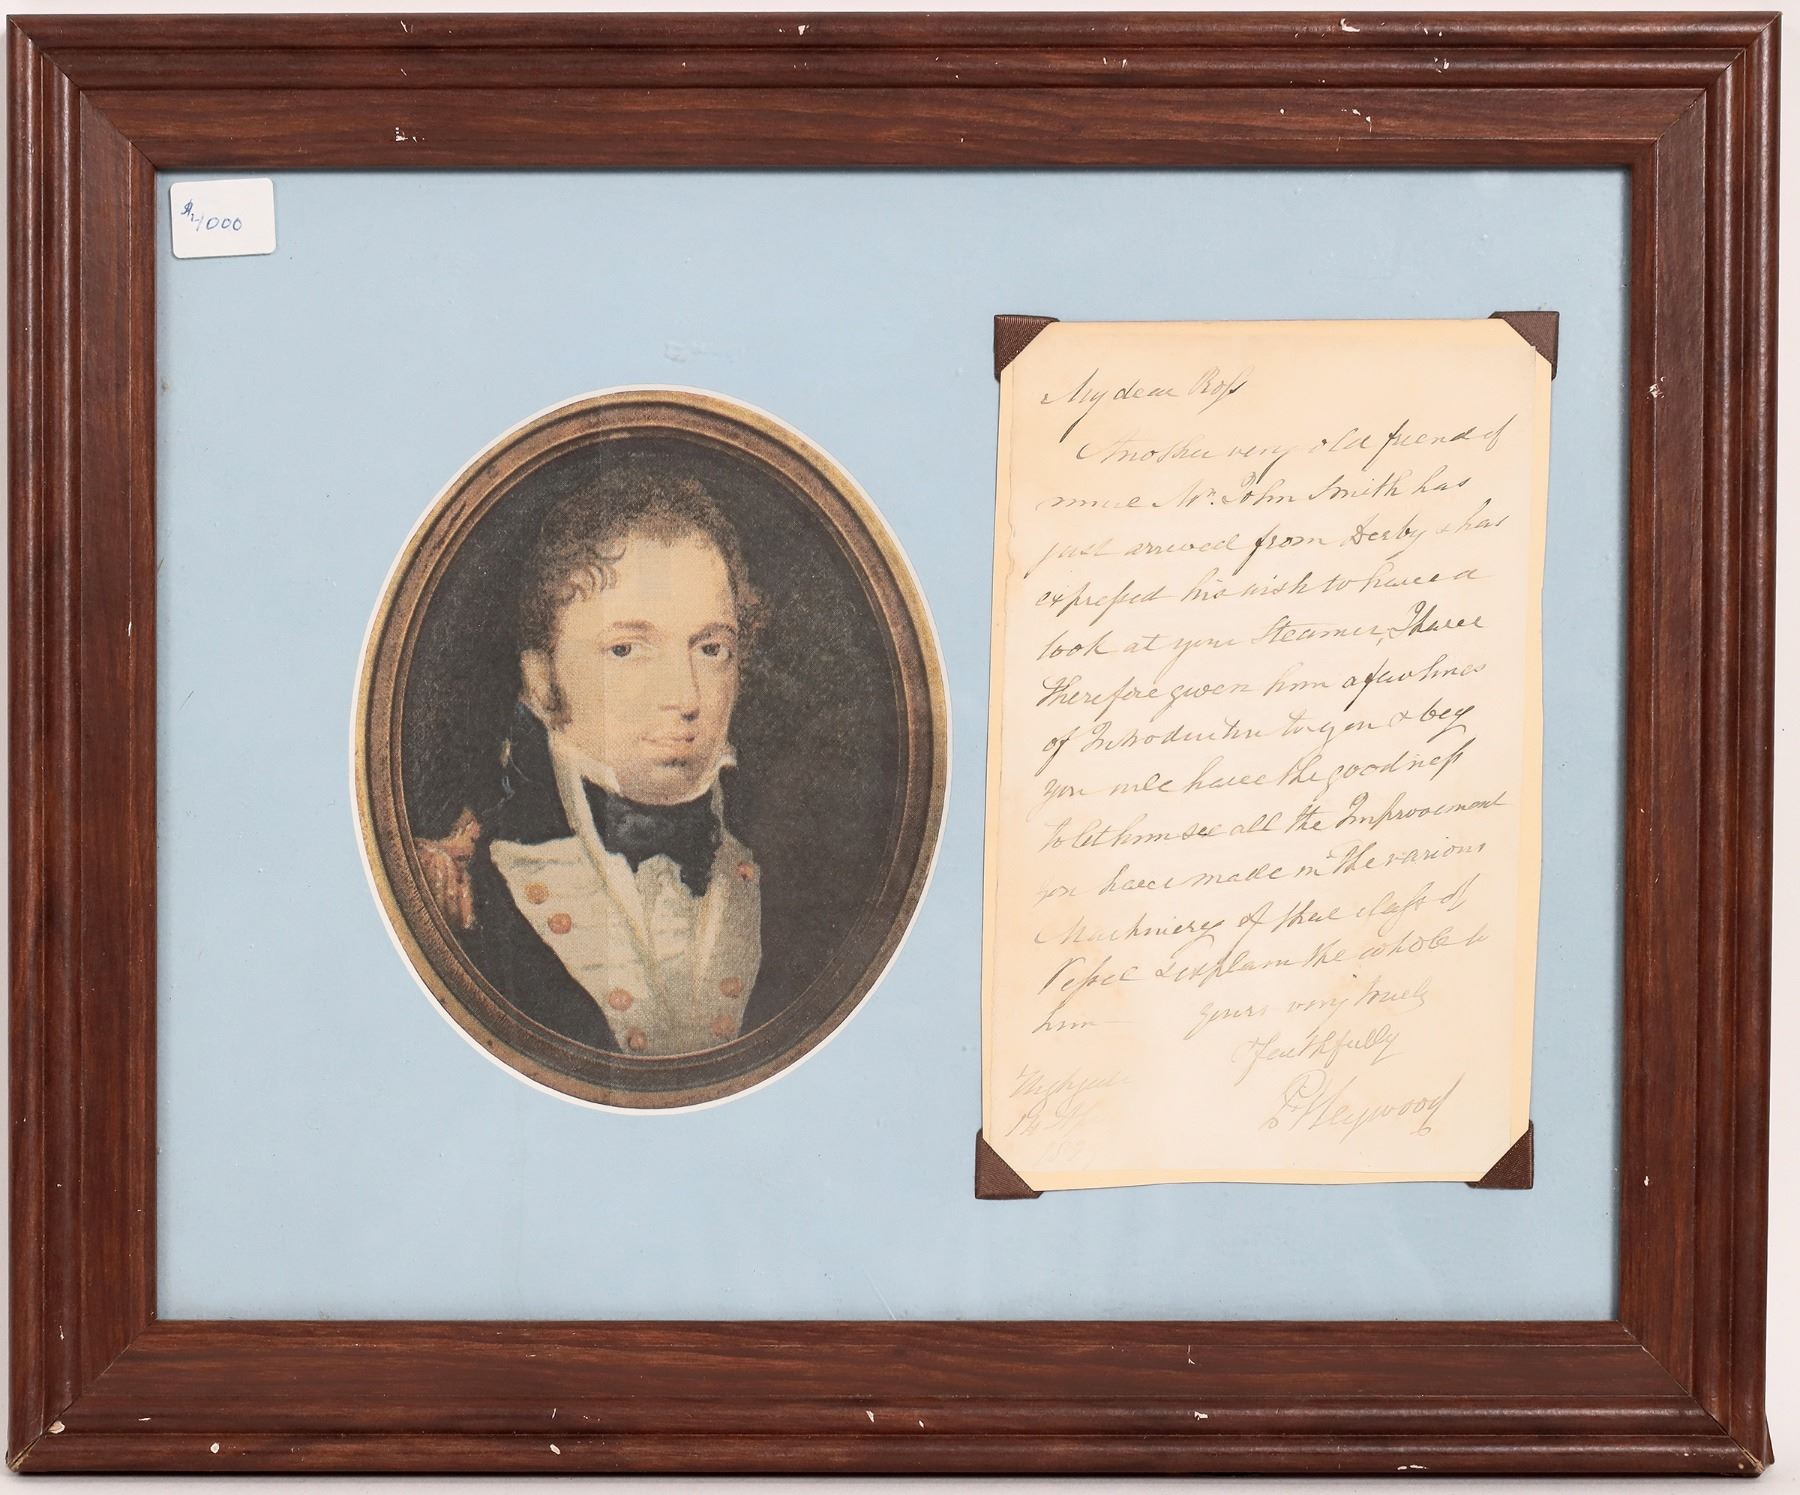 $1000
My dear Ross
Another very old friend of
mine Mr. John Smith has
just arrived from Derby & has
expressed his wish to have a
look at your Steamer, I have
therefore given him a few lines
of Introduction to you & beg
you will have the goodness
to let him see all the Improvement
you have made in the various
Machinery of that class of
Vessel & explain the whole to
him
yours very truly
& faithfully
P Heywood
Highgate
14
182